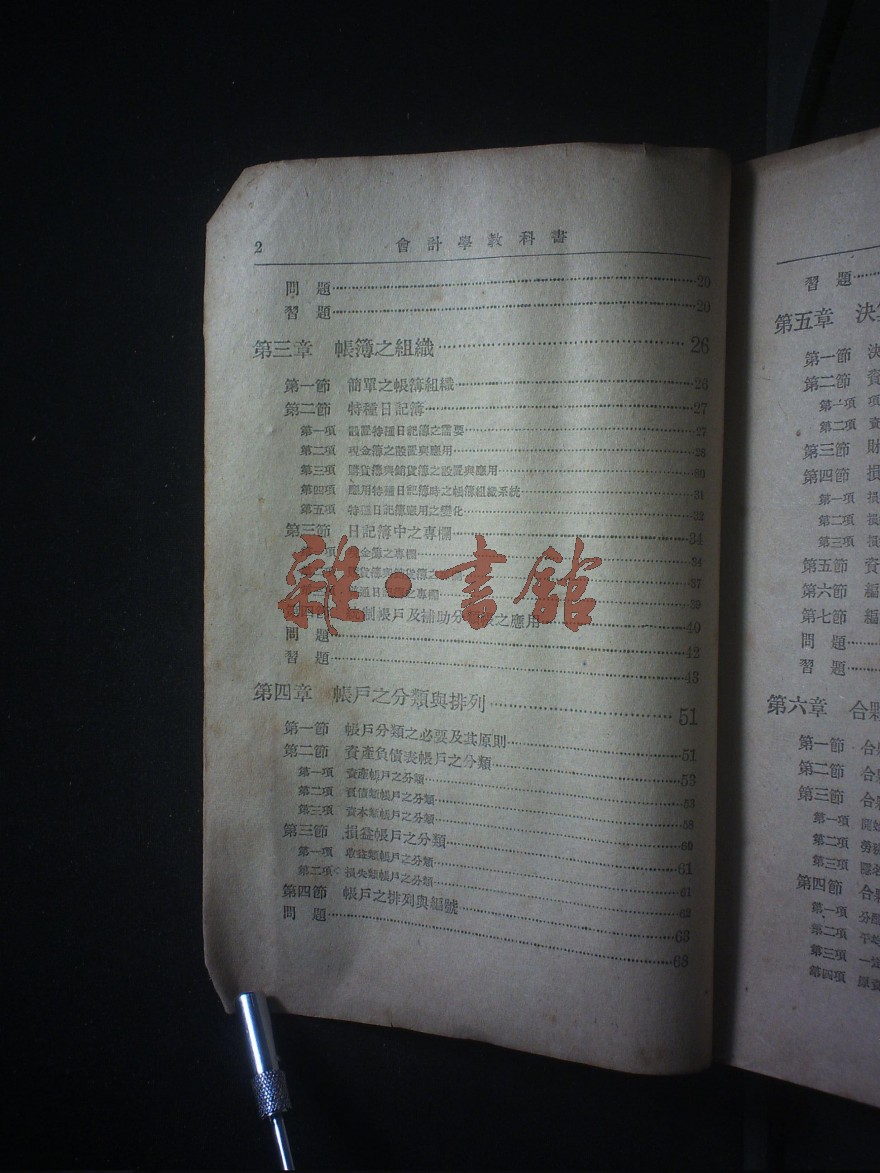 2 會計學教科書
問題 20
習題 20
第三章 帳簿之組織 26
第一節 簡單之帳簿組織 26
第二節 特種日記簿 27
第一項 設置特種日記簿之需要 27
第二項 現金簿之設置與應用 28
第三項 購貨簿與銷貨簿之設置與應用 30
第四項 應用特種日記簿時之帳簿組織系統 31
第五項 特種日記簿應用之變化 32
第三節 日記簿中之專欄 34
項 現金簿之專欄 34
貨簿與銷貨簿之 欄 37
通日 之專欄 39
第四節 制帳戶及補助分 之應用 40
問題 42
習題 43
第四章 帳戶之分類與排列 51
第一節 帳戶分類之必要及其原則 51
第二節 資產負債表帳戶之分類 53
第一項 資產帳戶之分類 53
第二項 負債類帳戶之分類 58
第三項 資本類帳戶之分類 60
第三節 損益帳戶之分類 61
第一項 收益類帳戶之分類 61
第二項 損失類帳戶之分類 62
第四節 帳戶之排列與編號 63
問題 68
雜·書館
習題
第五章 決
第一節 決
第二節 資
第一項 項
第二項 資
第三節 財
第四節 損
第一項 損
第二項 損
第三項 損
第五節 資
第六節 編
第七節 編
問題
習題
第六章 合夥
第一節 合夥
第二節 合夥
第三節 合夥
第一項 開始
第二項 勞
第三項 隱名
第四節 合夥
第一項 分
第二項 平均
第三項 一定
第四項 原資